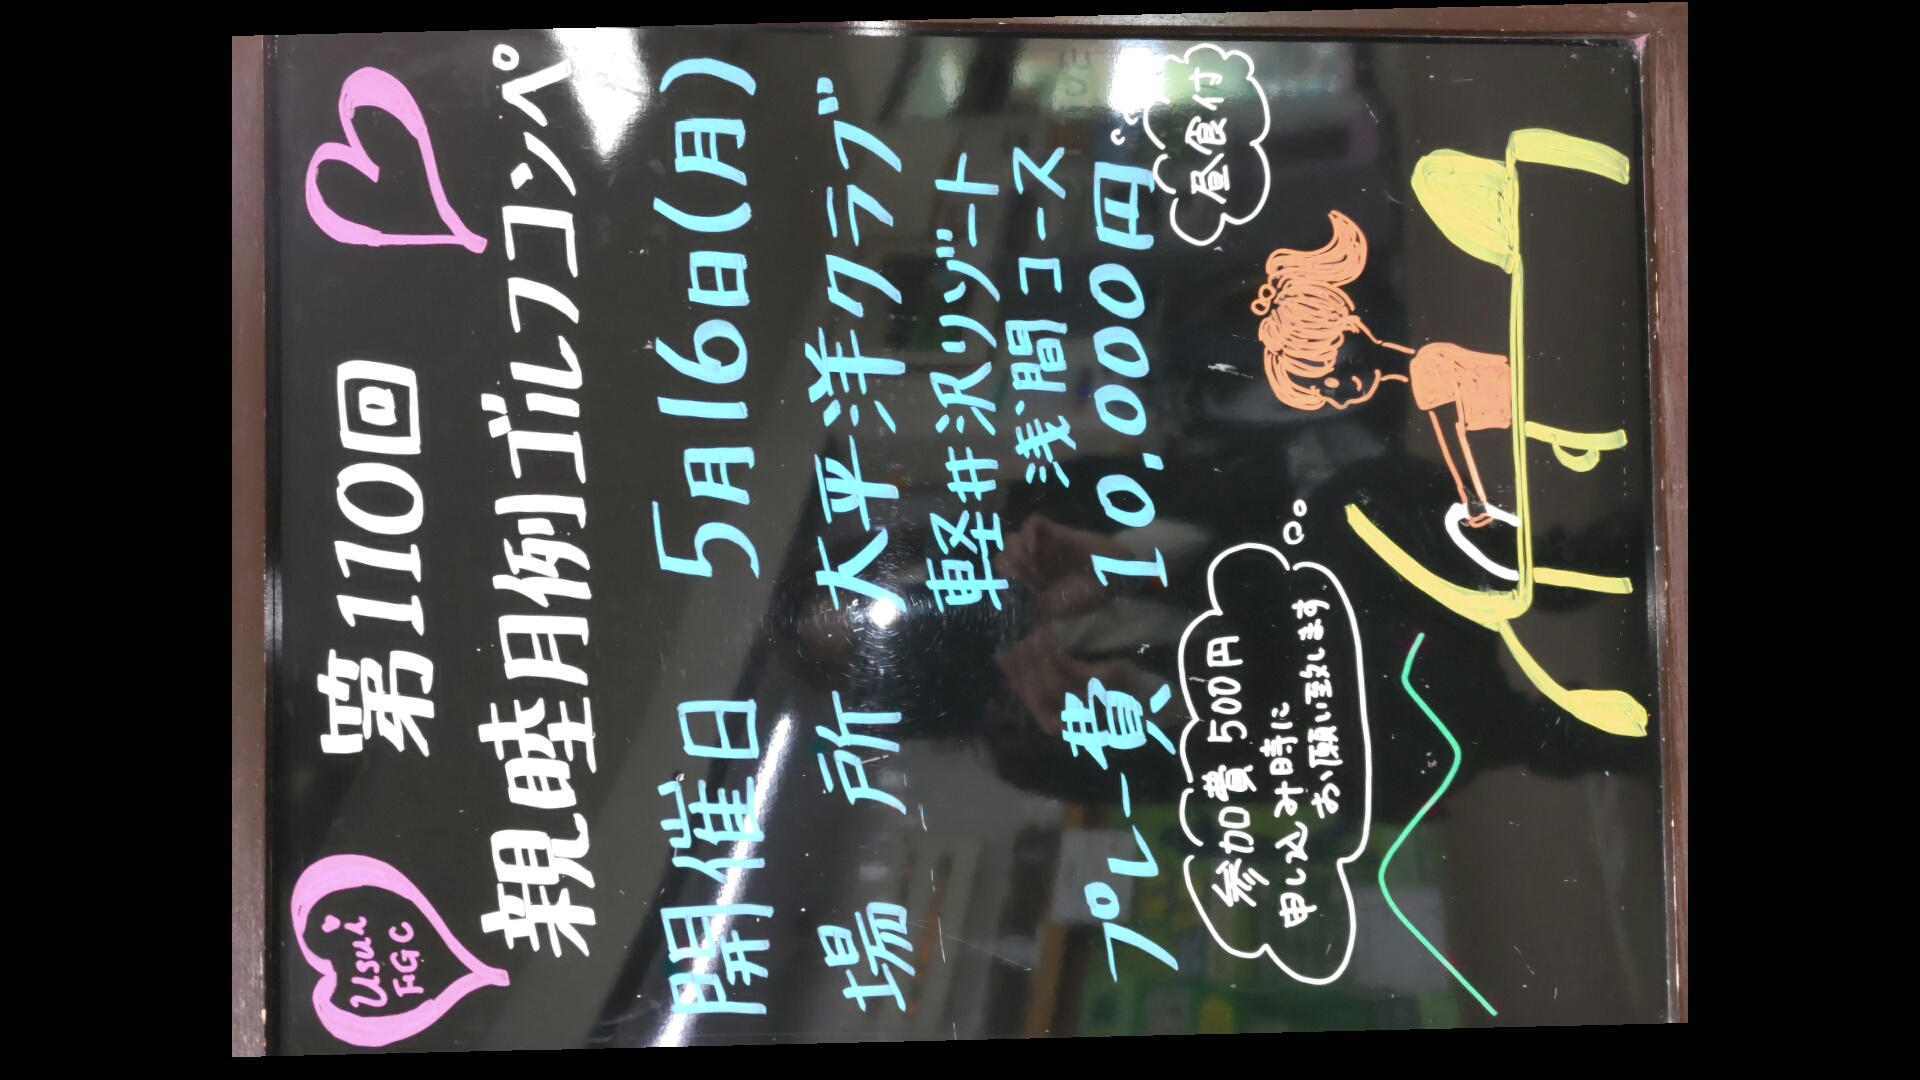 Usui
FGC
第110回
親睦月例ゴルフコンペ
開催日 5月16日(月)
場所 大平洋クラブ
軽井沢リゾート
浅間コース
プレー費 10,000円
昼食付
参加費 500円
申し込み時に
お願い致します